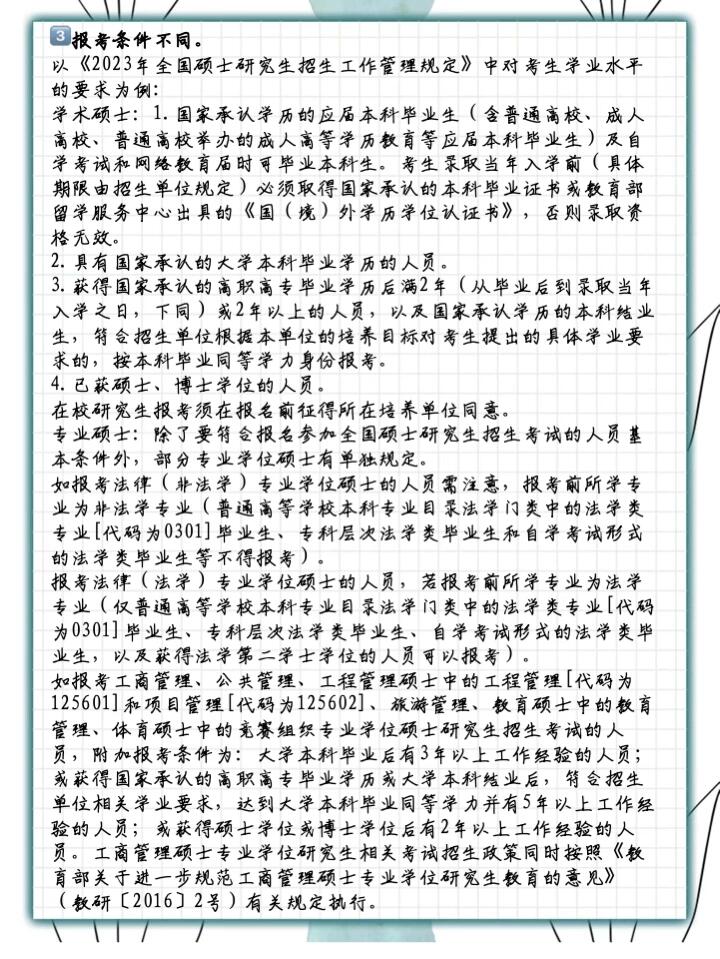 3 报考条件不同。
以《2023年全国硕士研究生招生工作管理规定》中对考生学业水平
的要求为例：
学术硕士：1.国家承认学历的应届本科毕业生（含普通高校、成人
高校、普通高校举办的成人高等学历教育等应届本科毕业生）及自
学考试和网络教育届时可毕业本科生。考生录取当年入学前（具体
期限由招生单位规定）必须取得国家承认的本科毕业证书或教育部
留学服务中心出具的《国（境）外学历学位认证书》，否则录取资
格无效。
2.具有国家承认的大学本科毕业学历的人员。
3.获得国家承认的高职高专毕业学历后满2年（从毕业后到录取当年
入学之日，下同）或2年以上的人员，以及国家承认学历的本科结业
生，符合招生单位根据本单位的培养目标对考生提出的具体学业要
求的，按本科毕业同等学力身份报考。
4.已获硕士、博士学位的人员。
在校研究生报考须在报名前征得所在培养单位同意。
专业硕士：除了要符合报名参加全国硕士研究生招生考试的人员基
本条件外，部分专业学位硕士有单独规定。
如报考法律（非法学）专业学位硕士的人员需注意，报考前所学专
业为非法学专业（普通高等学校本科专业目录法学门类中的法学类
专业[代码为0301]毕业生、专科层次法学类毕业生和自学考试形式
的法学类毕业生等不得报考）。
报考法律（法学）专业学位硕士的人员，若报考前所学专业为法学
专业（仅普通高等学校本科专业目录法学门类中的法学类专业[代码
为0301]毕业生、专科层次法学类毕业生、自学考试形式的法学类毕
业生，以及获得法学第二学士学位的人员可以报考）。
如报考工商管理、公共管理、工程管理硕士中的工程管理[代码为
125601]和项目管理[代码为125602]、旅游管理、教育硕士中的教育
管理、体育硕士中的竞赛组织专业学位硕士研究生招生考试的人
员，附加报考条件为：大学本科毕业后有3年以上工作经验的人员；
或获得国家承认的高职高专毕业学历或大学本科结业后，符合招生
单位相关学业要求，达到大学本科毕业同等学力并有5年以上工作经
验的人员；或获得硕士学位或博士学位后有2年以上工作经验的人
员。工商管理硕士专业学位研究生相关考试招生政策同时按照《教
育部关于进一步规范工商管理硕士专业学位研究生教育的意见》
（教研〔2016〕2号）有关规定执行。